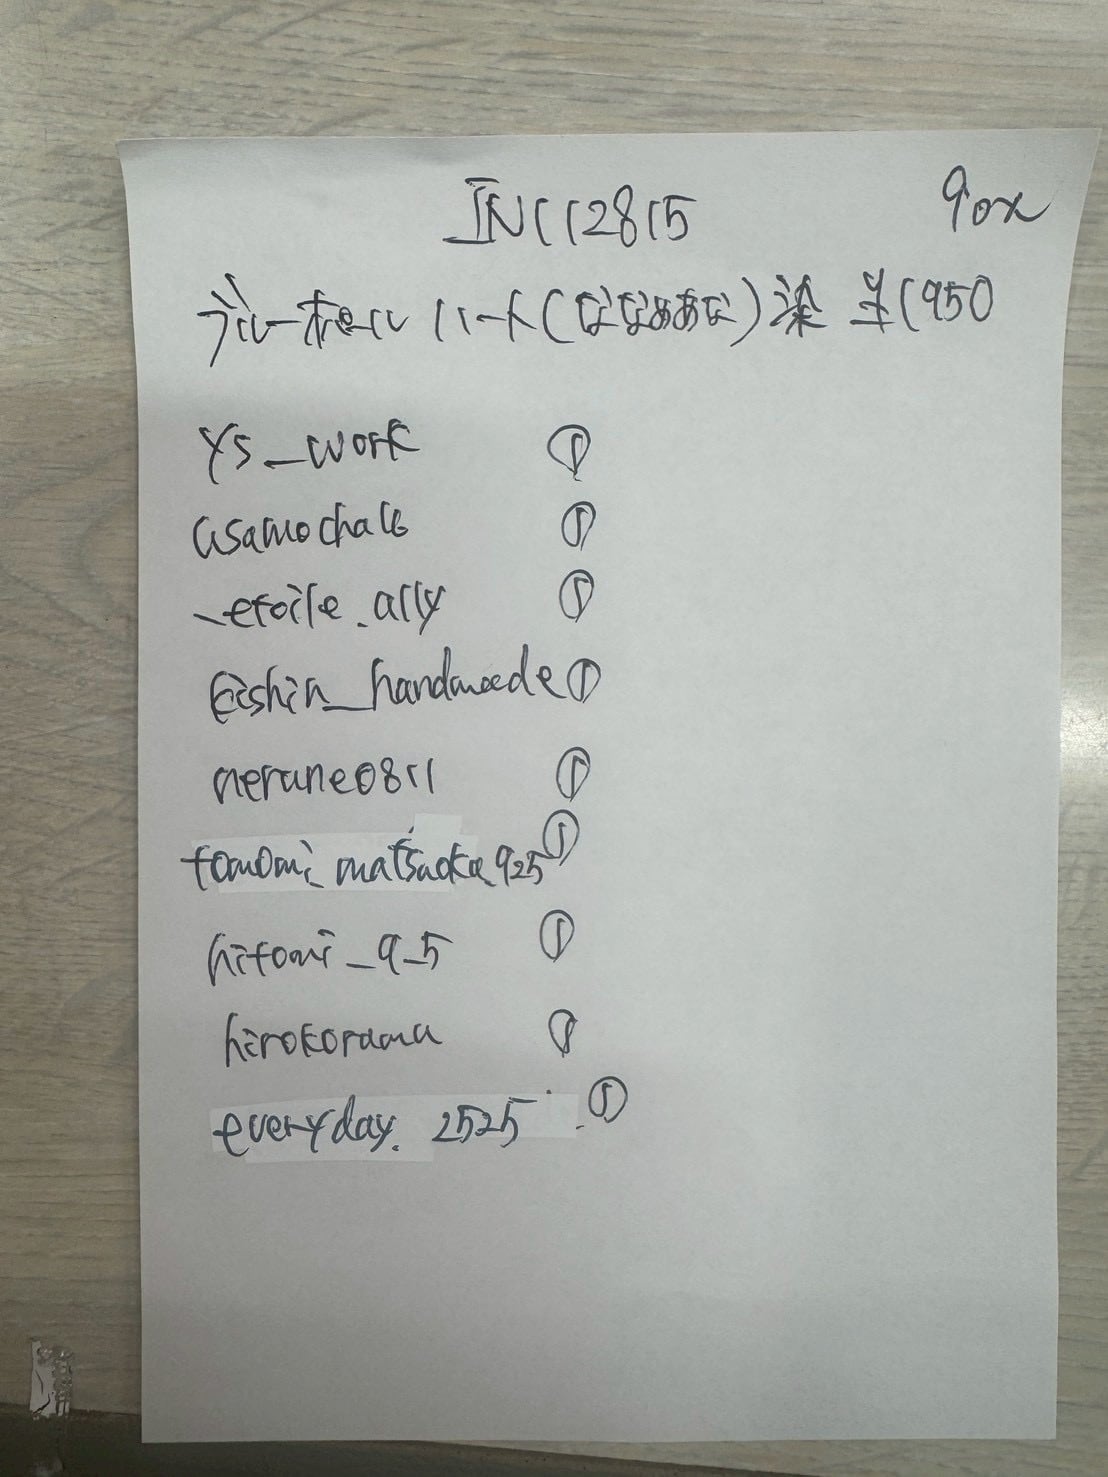 IN112815 9ox
ブルーホール ハート(ななめあな)染 ¥1950
ys_work ①
asamochale ①
_etoile.ally ①
Eishin_handmaede ①
nerune0811 ①
tomomi_matsuoka_925 ①
hitomi_9_5 ①
hirokorama ①
everyday.2525 ①